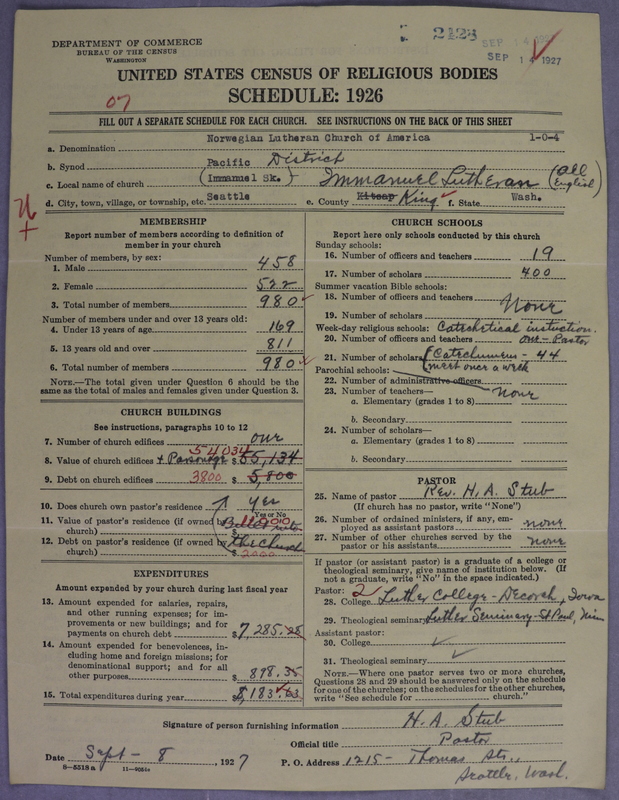 DEPARTMENT OF COMMERCE
BUREAU OF THE CENSUS
WASHINGTON
2423
SEP 14 1927
SEP 14 1927
UNITED STATES CENSUS OF RELIGIOUS BODIES
SCHEDULE: 1926
07
FILL OUT A SEPARATE SCHEDULE FOR EACH CHURCH. SEE INSTRUCTIONS ON THE BACK OF THIS SHEET
a. Denomination Norwegian Lutheran Church of America 1-0-4
b. Synod Pacific District
c. Local name of church (Immanuel Sk.) Immanuel Lutheran (all English)
d. City, town, village, or township, etc. Seattle e. County Kitsap King f. State Wash.
MEMBERSHIP
Report number of members according to definition of
member in your church
Number of members, by sex:
1. Male 458
2. Female 522
3. Total number of members 980
Number of members under and over 13 years old:
4. Under 13 years of age 169
5. 13 years old and over 811
6. Total number of members 980
NOTE.—The total given under Question 6 should be the
same as the total of males and females given under Question 3.
CHURCH BUILDINGS
See instructions, paragraphs 10 to 12
7. Number of church edifices one
54034
8. Value of church edifices + Parsonage $55,134
9. Debt on church edifices 3800 $5,800
10. Does church own pastor's residence? yes
Yes or No
11. Value of pastor's residence (if owned by
church) $
12. Debt on pastor's residence (if owned by the church
church) $ 2000
EXPENDITURES
Amount expended by your church during last fiscal year
13. Amount expended for salaries, repairs,
and other running expenses; for im-
provements or new buildings; and for
payments on church debt $7,285.28
14. Amount expended for benevolences, in-
cluding home and foreign missions; for
denominational support; and for all
other purposes $ 898.35
15. Total expenditures during year $8,183.63
CHURCH SCHOOLS
Report here only schools conducted by this church
Sunday schools:
16. Number of officers and teachers 19
17. Number of scholars 400
Summer vacation Bible schools:
18. Number of officers and teachers None
19. Number of scholars
Week-day religious schools: Catechetical instruction.
20. Number of officers and teachers one - Pastor
21. Number of scholars { Catechumens - 44
meet once a week
Parochial schools:
22. Number of administrative officers
23. Number of teachers— None
a. Elementary (grades 1 to 8)
b. Secondary
24. Number of scholars—
a. Elementary (grades 1 to 8)
b. Secondary
PASTOR
25. Name of pastor Rev. H. A. Stub
(If church has no pastor, write "None")
26. Number of ordained ministers, if any, em-
ployed as assistant pastors none
27. Number of other churches served by the
pastor or his assistants none
If pastor (or assistant pastor) is a graduate of a college or
theological seminary, give name of institution below. (If
not a graduate, write "No" in the space indicated.)
Pastor: 2
28. College Luther College - Decorah, Iowa
29. Theological seminary Luther Seminary - St Paul, Minn
Assistant pastor:
30. College
31. Theological seminary
NOTE.—Where one pastor serves two or more churches,
Questions 28 and 29 should be answered only on the schedule
for one of the churches; on the schedules for the other churches,
write "See schedule for church."
Signature of person furnishing information H. A. Stub
Official title Pastor
Date Sept - 8, 1927 P. O. Address 1215 - Thomas Str.,
Seattle, Wash.